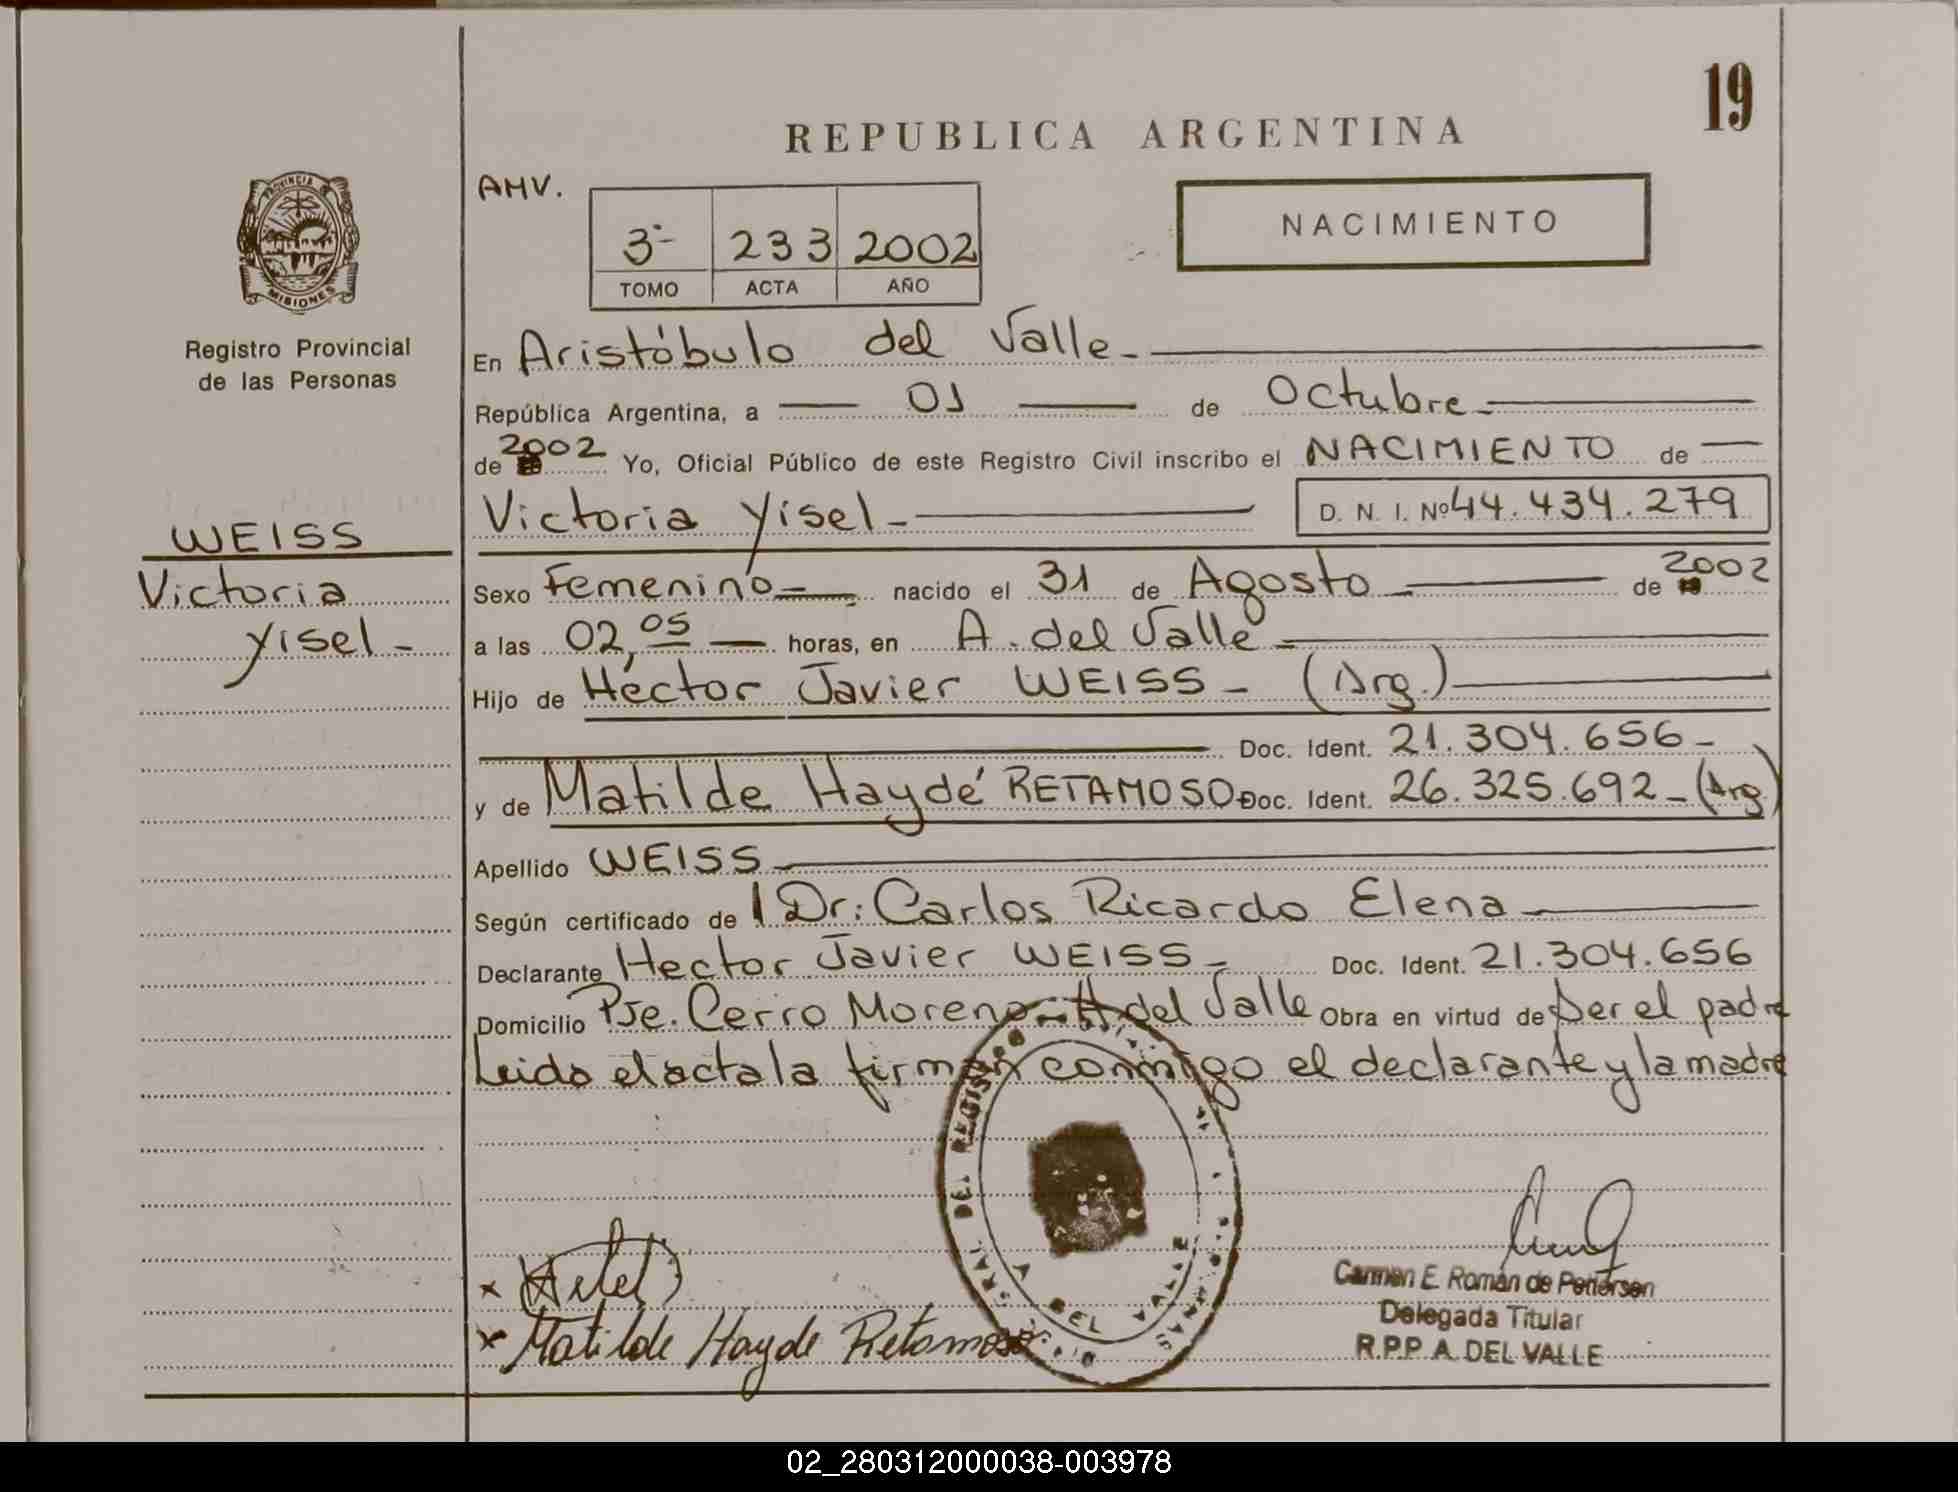 19
REPUBLICA ARGENTINA
AMV.
3º- 233 2002
TOMO ACTA AÑO
NACIMIENTO
PROVINCIA
MISIONES
Registro Provincial
de las Personas
WEISS
Victoria
Yisel -
En Aristóbulo del Valle -
República Argentina, a 01 de Octubre -
de 2002 Yo, Oficial Público de este Registro Civil inscribo el NACIMIENTO de
Victoria Yisel - D. N. I. Nº 44.434.279
Sexo Femenino - nacido el 31 de Agosto - de 2002
a las 02,05 horas, en A. del Valle -
Hijo de Héctor Javier WEISS - (Arg.)
Doc. Ident. 21.304.656 -
y de Matilde Haydé RETAMOSO Doc. Ident. 26.325.692 - (Arg.)
Apellido WEISS
Según certificado de Dr: Carlos Ricardo Elena
Declarante Hector Javier WEISS - Doc. Ident. 21.304.656
Domicilio Pje. Cerro Moreno - A. del Valle Obra en virtud de Ser el padre
Leida el acta la firman conmigo el declarante y la madre
DEL REGISTRO
DEL VALLE
x
x Matilde Hayde Retamoso
Carmen E. Román de Petterson
Delegada Titular
R.P.P A. DEL VALLE
02_280312000038-003978